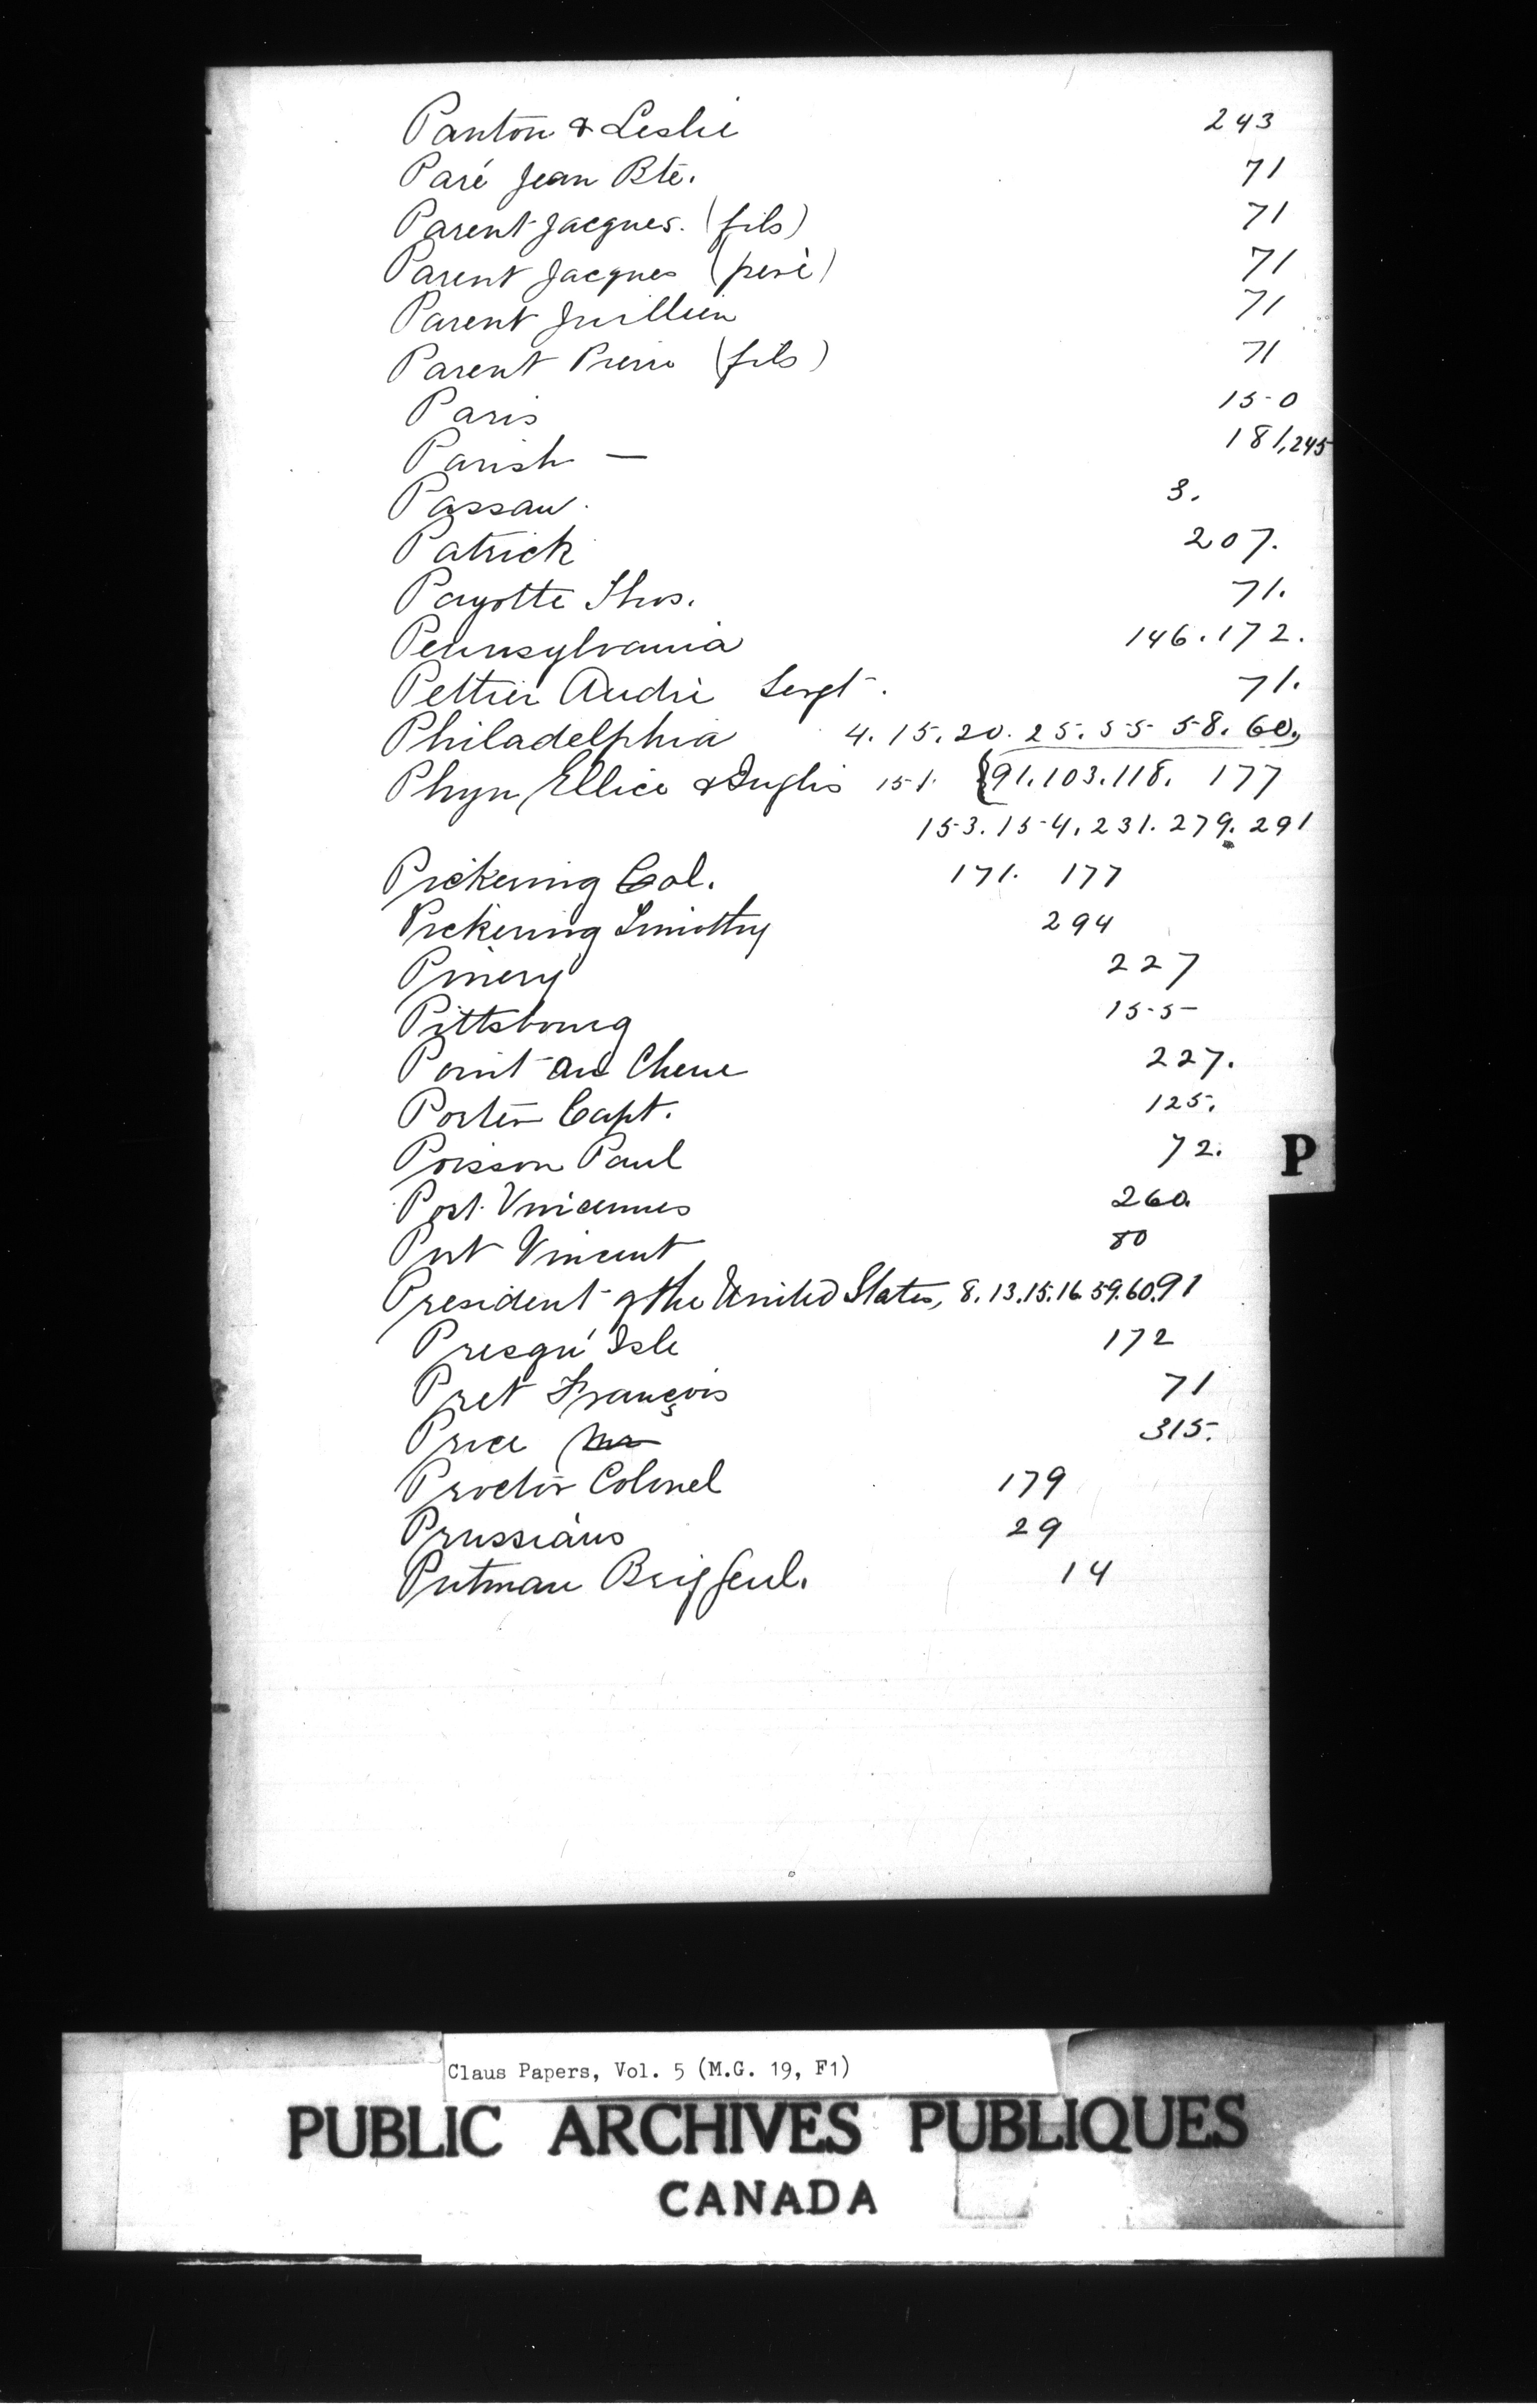 Panton & Leslie 243
Paré Jean Bte. 71
Parent Jacques. (fils) 71
Parent Jacques (peré) 71
Parent Juillien 71
Parent Pierre (fils) 71
Paris 150
Parish — 181,245
Passau. 3.
Patrick 207.
Payotte Thos. 71.
Pennsylvania 146.172.
Peltier André Sergt. 71.
Philadelphia 4.15.20.25.55 58.60,
Phyn Ellice & Inglis 151. {91.103.118. 177
153.154.231.279.291
Pickering Col. 171. 177
Pickering Timothy 294
Pinery 227
Pittsbourg 155
Point au Chene 227.
Porter Capt. 125.
Poisson Paul 72.
Post Vincennes 260.
Port Vincent 80
President of the United States, 8.13.15.16.59.60.91
Presqu' Isle 172
Pret François 71
Price Mr 315.
Proctor Colonel 179
Prussians 29
Putman Brig Genl. 14
P
Claus Papers, Vol. 5 (M.G. 19, F1)
PUBLIC ARCHIVES PUBLIQUES
CANADA